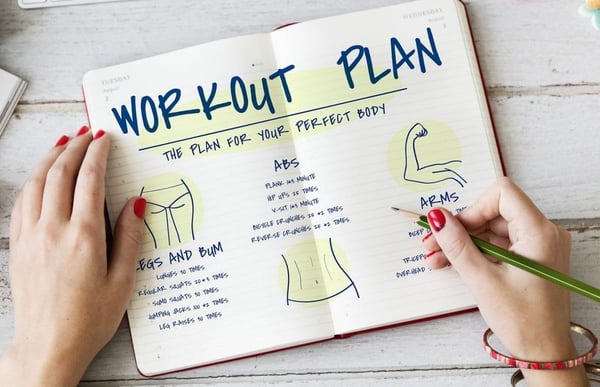 TUESDAY
August
2
WEDNESDAY
August
3
WORKOUT PLAN
THE PLAN FOR YOUR PERFECT BODY
ABS
PLANK 1*1 MINUTE
HIP UPS 25 TIMES
V-SIT 1*1 MINUTE
BICYCLE CRUNCHES 20 *2 TIMES
REVERSE CRUNCHES 20 *2 TIMES
LEGS AND BUM
LUNGES 50 TIMES
REGULAR SQUATS 20*3 TIMES
SUMO SQUATS 50 TIMES
JUMPING JACKS 100 *2 TIMES
LEG RAISES 50 TIMES
ARMS
TRICEPS
OVERHEAD